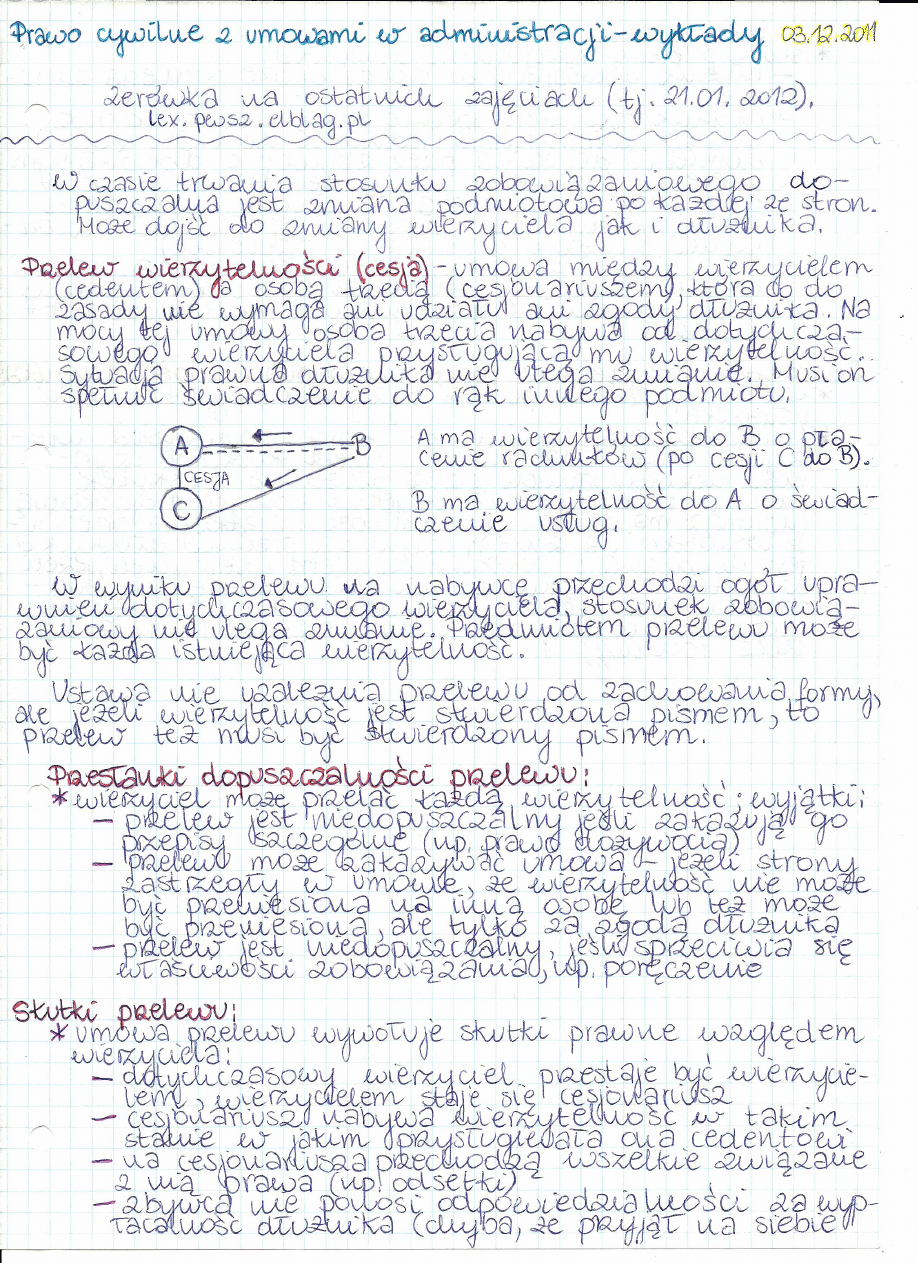 Prawo cywilne z umowami w administracji - wykłady 03.12.2011
zerówka na ostatnich zajęciach (tj. 21.01.2012).
lex.pwsz.elblag.pl
W czasie trwania stosunku zobowiązaniowego do-
puszczalna jest zmiana podmiotowa po każdej ze stron.
Może dojść do zmiany wierzyciela jak i dłużnika.
Przelew wierzytelności (cesja) - umowa między wierzycielem
(cedentem) a osobą trzecią (cesjonariuszem), która co do
zasady nie wymaga ani udziału ani zgody dłużnika. Na
mocy tej umowy osoba trzecia nabywa od dotychcza-
sowego wierzyciela przysługującą mu wierzytelność.
Sytuacja prawna dłużnika nie ulega zmianie. Musi on
spełnić świadczenie do rąk innego podmiotu.
A B
CESJA
C
A ma wierzytelność do B o pła-
cenie rachunków (po cesji C do B).
B ma wierzytelność do A o świad-
czenie usług.
W wyniku przelewu na nabywcę przechodzi ogół upra-
wnień dotychczasowego wierzyciela, stosunek zobowią-
zaniowy nie ulega zmianie. Przedmiotem przelewu może
być każda istniejąca wierzytelność.
Ustawa nie uzależnia przelewu od zachowania formy,
ale jeżeli wierzytelność jest stwierdzona pismem, to
przelew też musi być stwierdzony pismem.
Przesłanki dopuszczalności przelewu:
* wierzyciel może przelać każdą wierzytelność; wyjątki:
- przelew jest niedopuszczalny jeśli zakazują go
przepisy szczególne (np. prawo dożywocia)
- przelewu może zakazywać umowa - jeżeli strony
zastrzegły w umowie, że wierzytelność nie może
być przeniesiona na inną osobę lub też może
być przeniesiona, ale tylko za zgodą dłużnika
- przelew jest niedopuszczalny, jeśli sprzeciwia się
właściwości zobowiązania, np. poręczenie
Skutki przelewu:
* umowa przelewu wywołuje skutki prawne względem
wierzyciela:
- dotychczasowy wierzyciel przestaje być wierzycie-
lem, wierzycielem staje się cesjonariusz
- cesjonariusz nabywa wierzytelność w takim
stanie w jakim przysługiwała ona cedentowi
- na cesjonariusza przechodzą wszelkie związane
z nią prawa (np. odsetki)
- zbywca nie ponosi odpowiedzialności za wyp-
łacalność dłużnika (chyba, że przyjął na siebie